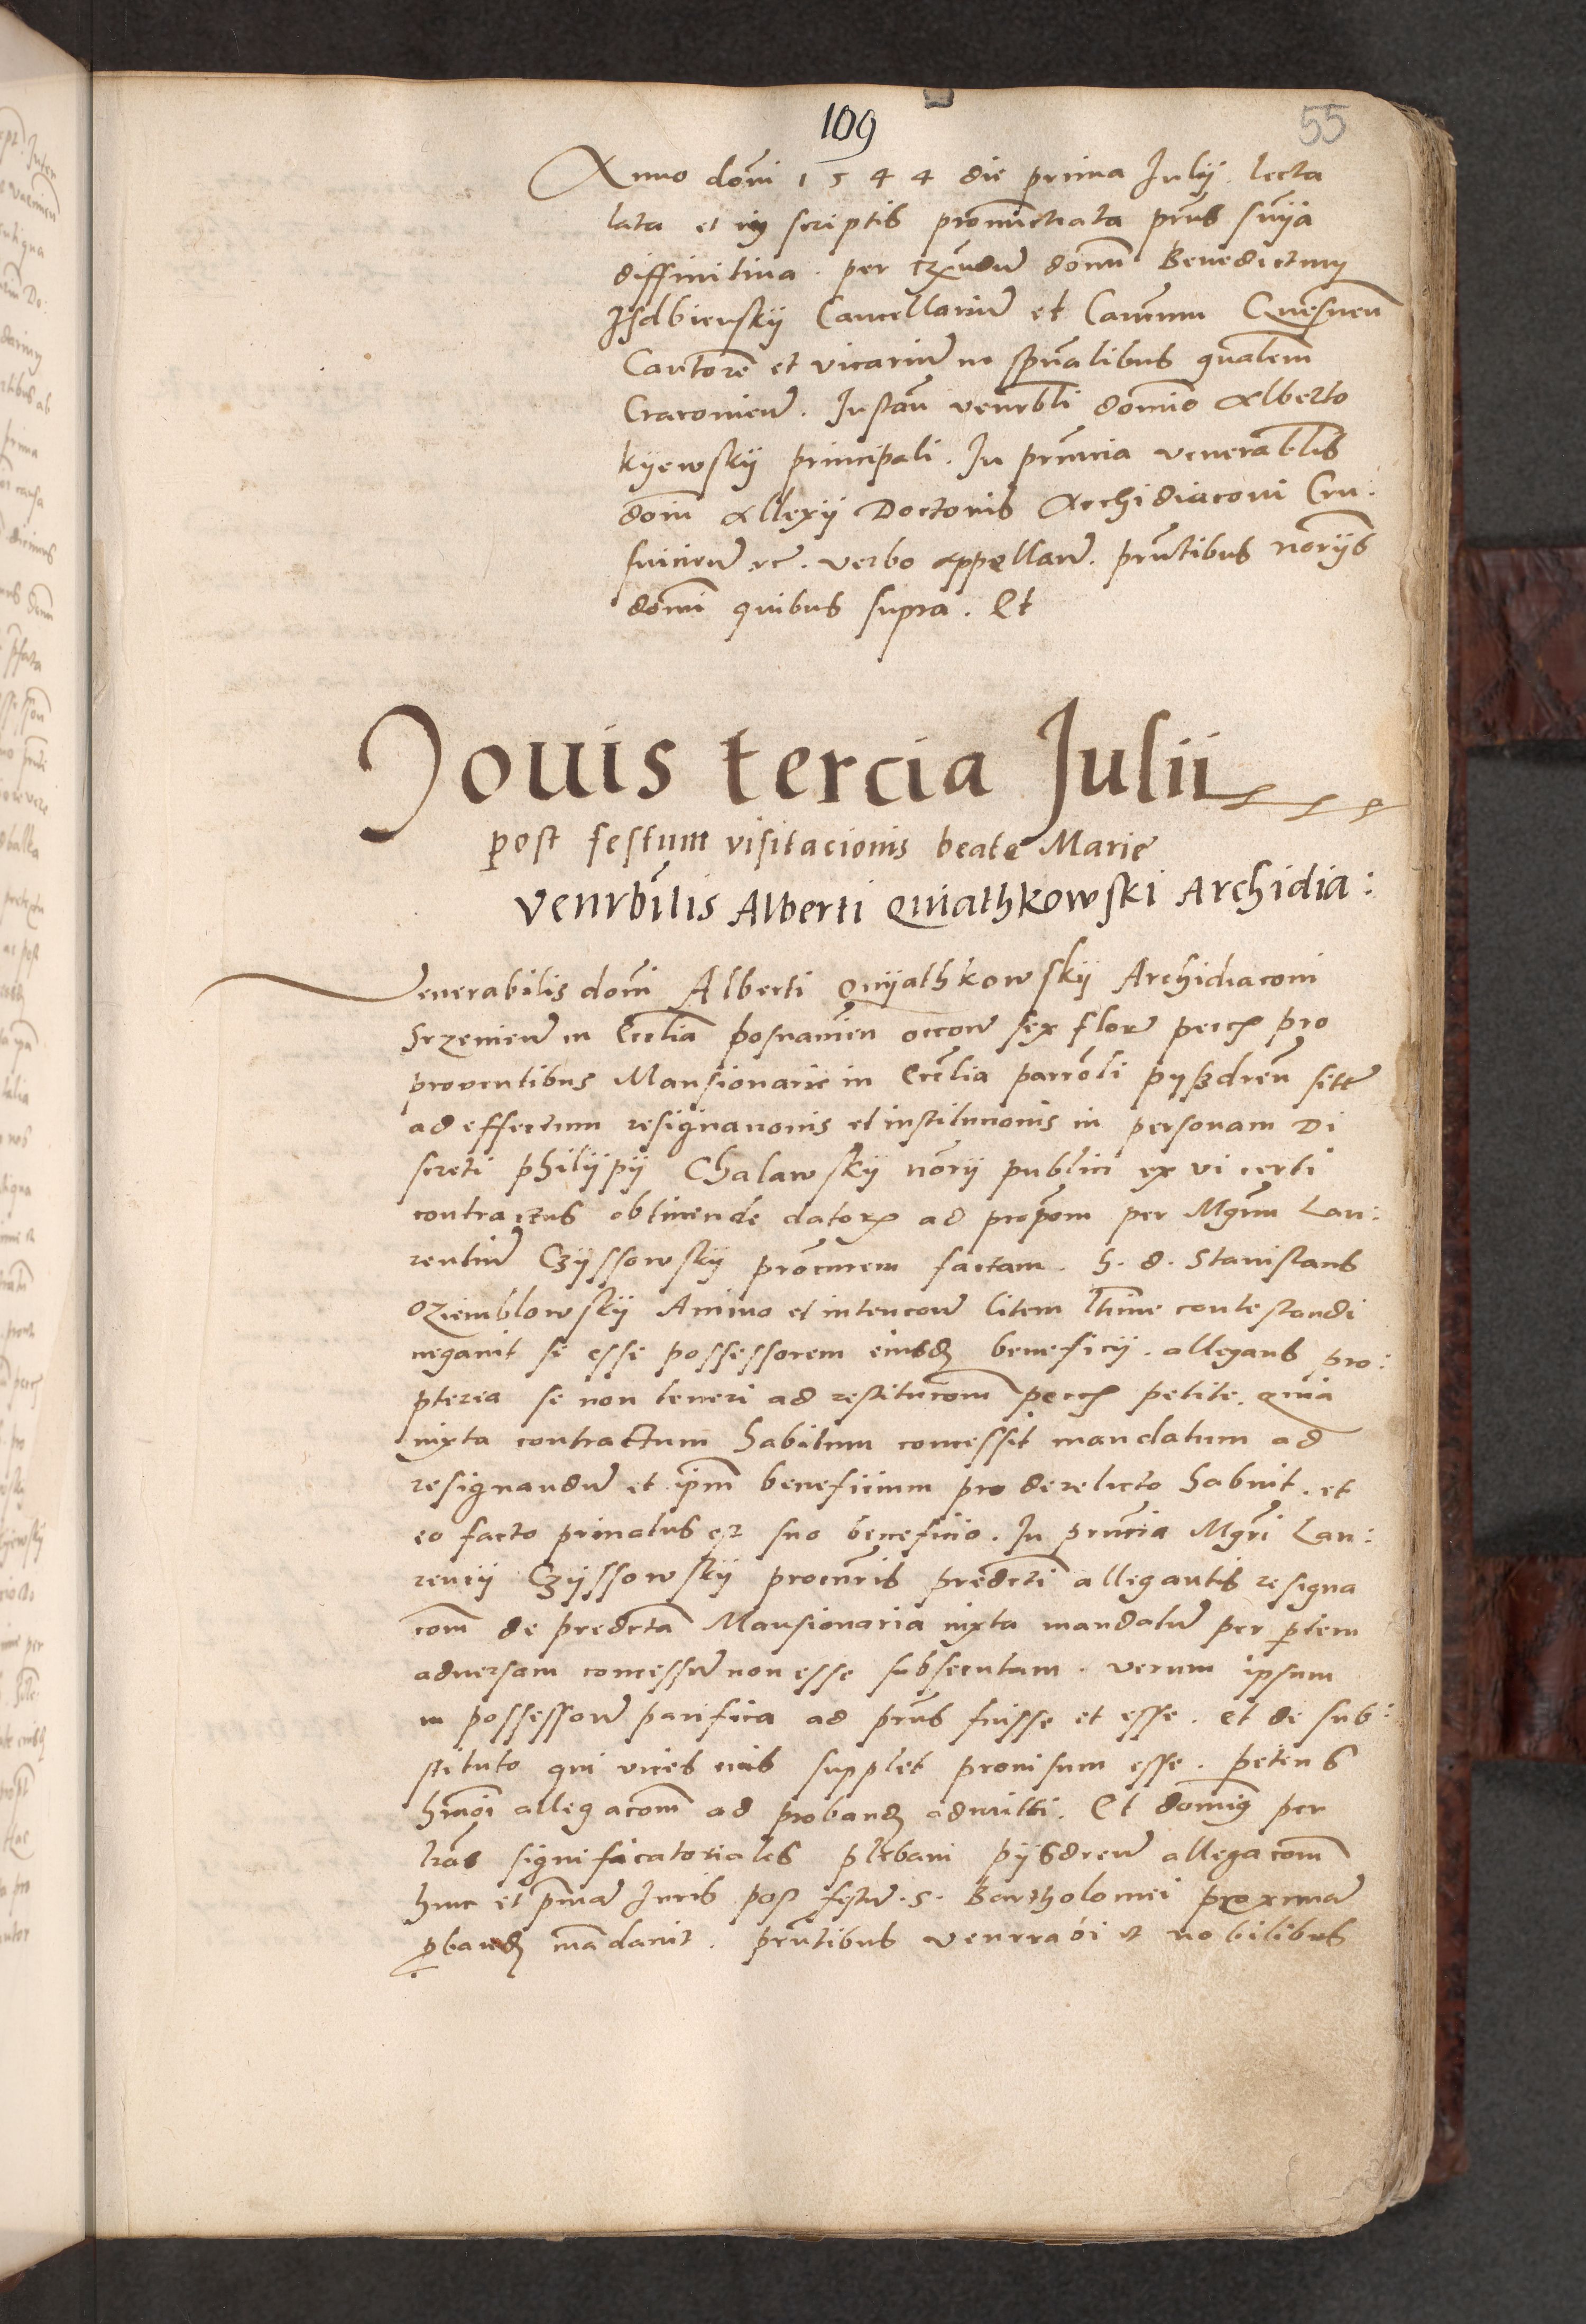 109
55
Anno domi 1544 die prima Julij. lecta
lata et in scriptis pronunctiata prns snija
diffinitiva. per Rxndum domnu Benedictum
Jsdbienskij Cancellarium et Canonum Gnesnen
Cantorem et vicarium in spualibus gnalem
Cracovien. Instan venrbli domino Alberto
kijewskij principali. In prncia venerablis
domi Allexij Doctoris Archidiaconi Cru:
suicien rc. verbo appellan. prntibus norijs
domi quibus supra. Et
Jouis tercia Julii
post festum visitacionis beate Marie
Venrbilis Alberti Quiathkowski Archidia:
Venerabilis domi Alberti Qwijathkowskij Archidiaconi
Srzemien in Ecclia posnanien occone sex flor pecc pro
proventibus Mansionarie in Ecclia parrochli pyszdren sitte
ad effectum resignationis et institutionis in personam Di
screti philijpij Chalawskij norij publici ex vi certi
contractus obtinende datorum ad propom per Mgrum Lau:
rentium Czyssowskij procurem factam. h. d. Stanislaus
Oziemblowskij Animo et intencone litem ltime contestandi
negavit se esse possessorem eiusdem beneficij. allegans pro:
pterea se non teneri ad restitucom pecc petite. quia
iuxta contractum habitum concessit mandatum ad
resignandum et ipm beneficium pro derelicto habuit. et
eo facto privatus est suo beneficio. In prncia Mgri Lau:
rencij Czyssowskij procuris predcti allegantis resigna
com de predcta Mansionaria iuxta mandatum per ptem
adversam concessum non esse subsecutam. verum ipsum
in possessione pacifica ad prns fuisse et esse. et de sub:
stituto qui vices eius supplet provisum esse. petens
hmoi allegacom ad proband admitti. Et dominus per
lras significatoriales plebani pijsdren allegacom
hinc et prima Juris post festum s. Bartholomei proximam
proband mandavit. prntibus venrra et nobilibus